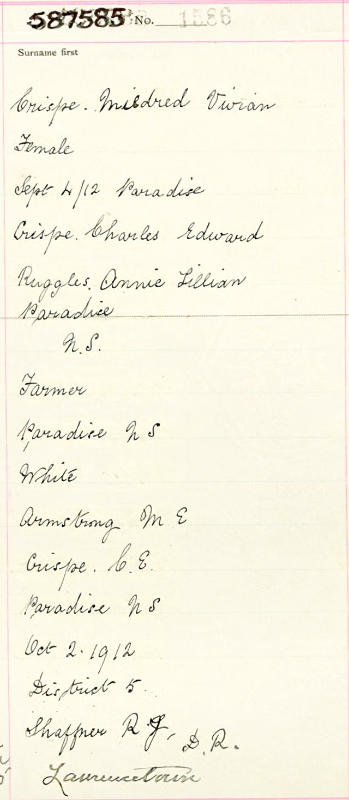 587585 No. 1586
Surname first
Crispe. Mildred Vivian
Female
Sept 4/12 Paradise
Crispe. Charles Edward
Ruggles. Annie Lillian
Paradise
N.S.
Farmer
Paradise N S
White
Armstrong M E
Crispe. C.E.
Paradise N S
Oct 2. 1912
District 5.
Shaffner R J, D.R.
Lawrencetown